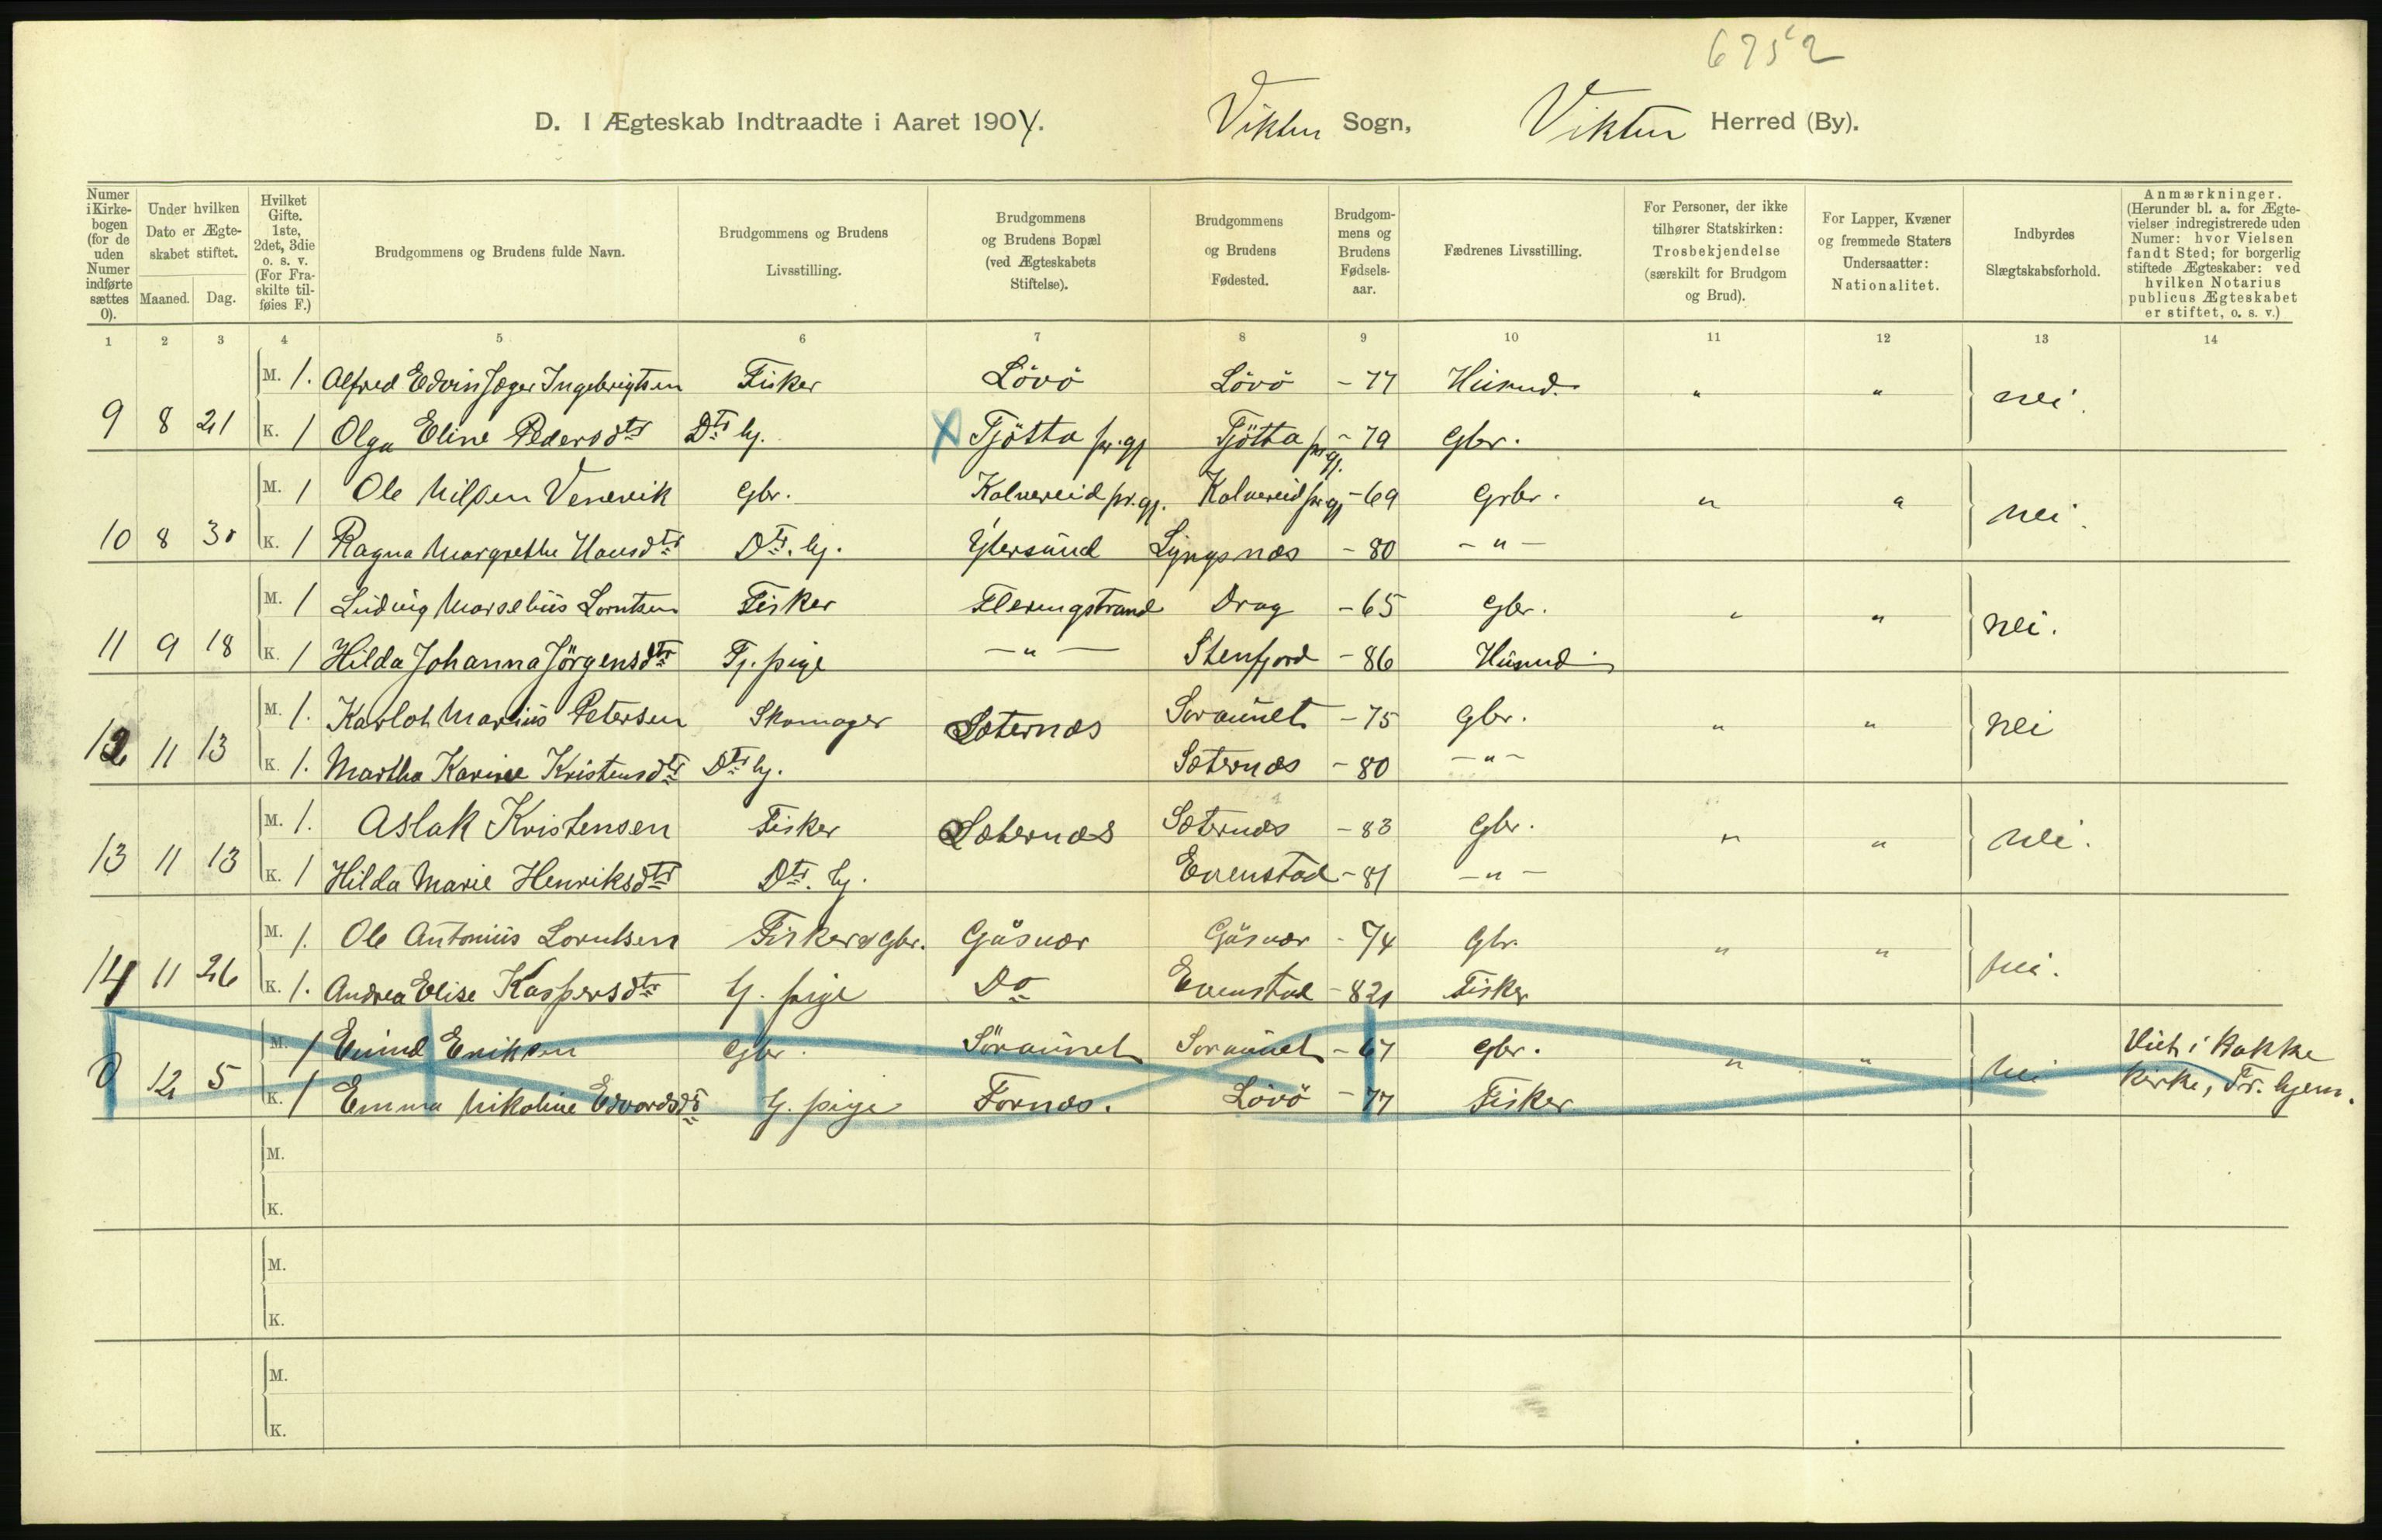 6752
D. I Ægteskab Indtraadte i Aaret 1904. Vikten Sogn, Vikten Herred (By).
Numer i Kirkebogen (for de uden Numer indførte sættes 0). Under hvilken Dato er Ægteskabet stiftet. Maaned. Dag. Hvilket Gifte. 1ste, 2det, 3die o. s. v. (For Fraskilte tilføies F.) Brudgommens og Brudens fulde Navn. Brudgommens og Brudens Livsstilling. Brudgommens og Brudens Bopæl (ved Ægteskabets Stiftelse). Brudgommens og Brudens Fødested. Brudgommens og Brudens Fødselsaar. Fædrenes Livsstilling. For Personer, der ikke tilhører Statskirken: Trosbekjendelse (særskilt for Brudgom og Brud). For Lapper, Kvæner og fremmede Staters Undersaatter: Nationalitet. Indbyrdes Slægtskabsforhold. Anmærkninger. (Herunder bl. a. for Ægtevielser indregistrerede uden Numer: hvor Vielsen fandt Sted; for borgerlig stiftede Ægteskaber: ved hvilken Notarius publicus Ægteskabet er stiftet, o. s. v.)
1 2 3 4 5 6 7 8 9 10 11 12 13 14
M. 1. Alfred Edvin Jæger Ingebrigtsen Fisker Lövö Lövö - 77 Husmd. " " nei.
9 8 21 K. 1 Olga Eline Pedersdtr Dtr hj. X Tjötta pr.gj Tjötta pr.gj. - 79 Gbr.
M. 1 Ole Nilsen Venevik Gbr. Kolvereid pr.gj. Kolvereid pr.gj - 69 Grbr. " " nei.
10 8 30 K. 1 Ragna Margrethe Hansdtr Dtr. hj. Ytersund Lyngsnæs - 80 - " -
M. 1 Ludvig Marselius Lorntsen Fisker Fleringstrand Drag - 65 Gbr. " " nei.
11 9 18 K. 1 Hilda Johanna Jörgensdtr Tj. pige - " - Stenfjord - 86 Husmd.
M. 1. Karlot Marius Petersen Skomager Sæternæs Soraunet - 75 Gbr. " " nei
12 11 13 K. 1. Martha Karine Kristensdtr Dtr hj. Sæternæs - 80 - " -
M. 1. Aslak Kristensen Fisker Sæternæs Sæternæs - 83 Gbr. " " nei.
13 11 13 K. 1 Hilda Marie Henriksdtr Dtr. hj. Evenstad - 81 - " -
M. 1. Ole Antonius Lorntsen Fisker & Gbr. Gåsvær Gåsvær - 74 Gbr. " " nei.
14 11 26 K. 1. Andrea Elise Kaspersdtr tj. pige Do Evenstad - 82 Fisker
M. 1 Eivind Eriksen Gbr. Söraunet Soraunet - 67 Gbr. " " nei Viet i Bakke
0 12 5 K. 1 Emma Nikoline Edvardsdtr tj. pige Fornæs. Lövö - 77 Fisker kirke, Tr. hjem.
M.
K.
M.
K.
M.
K.